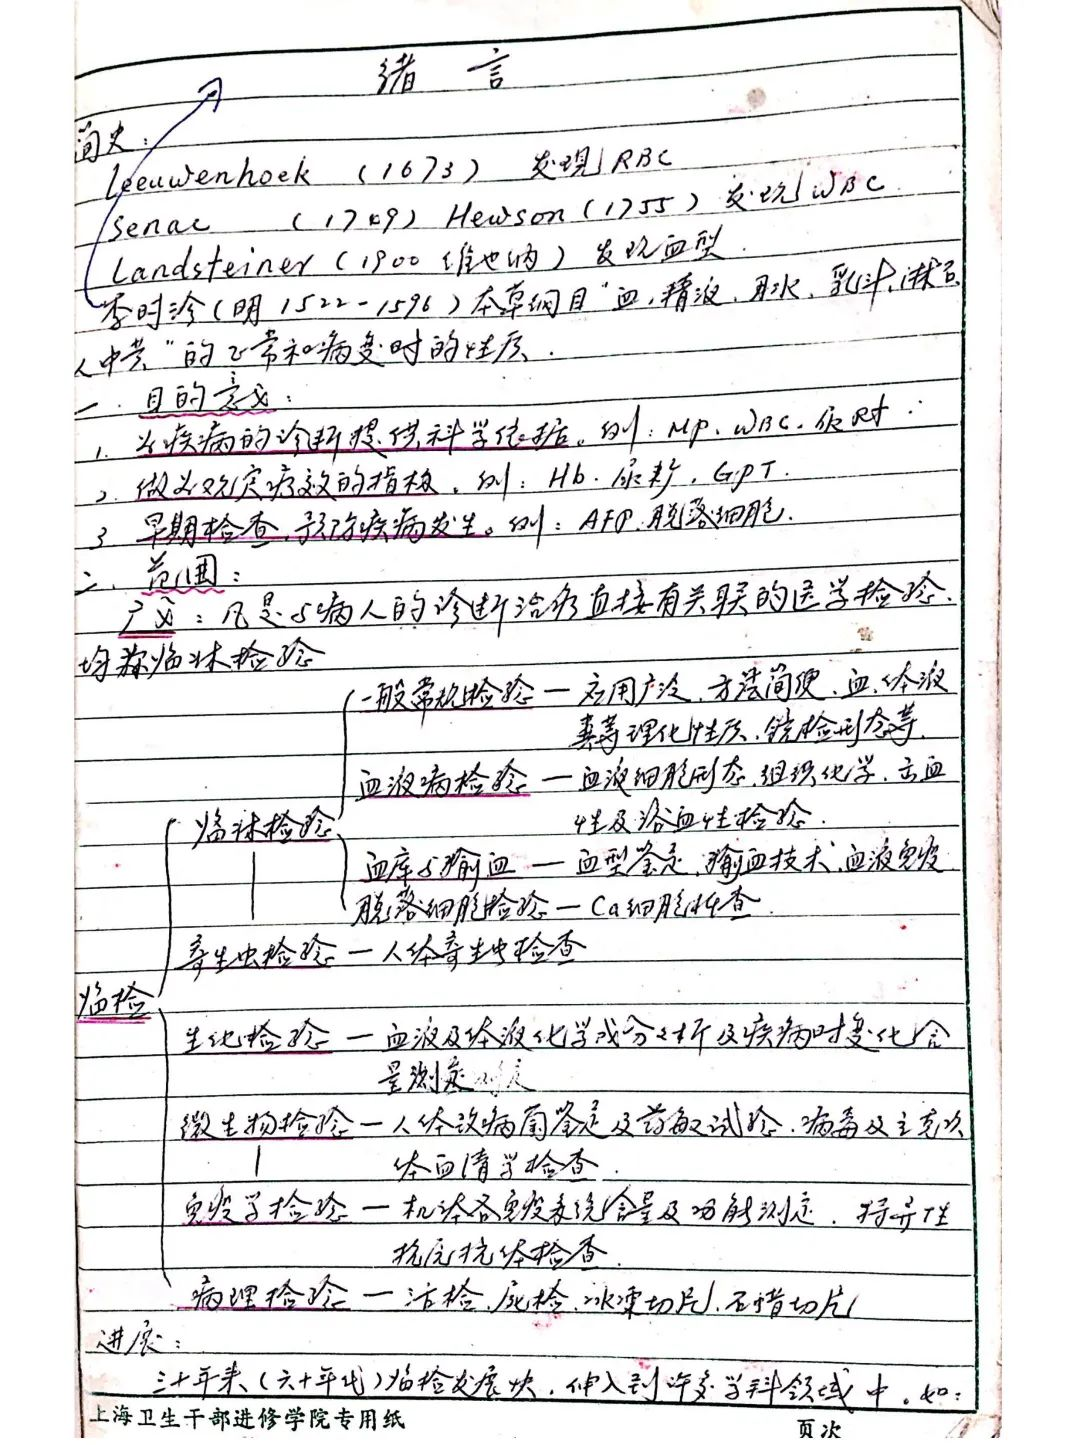 绪言
简史：
Leeuwenhoek （1673） 发现RBC
Senac （1749） Hewson（1755）发现WBC
Landsteiner（1900 维也纳）发现血型.
李时珍（明1522-1596）本草纲目"血,精液,月水,乳汁,淋石
人中黄"的正常和病变时的性质.
一. 目的意义：
1. 为疾病的诊断提供科学依据。例：MP. WBC. 尿Rt
2. 做为观定疗效的指标。例：Hb. 尿糖. GPT.
3 早期检查,预防疾病发生。例：AFP 脱落细胞.
二. 范围：
广义：凡是与病人的诊断治疗直接有关联的医学检验,
均称临床检验
一般常规检验 — 应用广泛,方法简便,血.体液
粪等理化性质.镜检形态等.
血液病检验 — 血液细胞形态.组织化学.出血
性及溶血性检验.
临床检验
血库与输血 — 血型鉴定,输血技术,血液免疫
脱落细胞检验 — Ca细胞检查.
寄生虫检验 — 人体寄生虫检查
临检
生化检验 — 血液及体液化学成分分析及疾病时变化含
量测定
微生物检验 — 人体致病菌鉴定及药敏试验.病毒及立克次
体血清学检查.
免疫学检验 — 机体各免疫系统含量及功能测定.特异性
抗原抗体检查.
病理检验 — 活检.尸检.冰冻切片.石蜡切片
进展：
三十年来（六十年代）临检发展快,伸入到许多学科领域中.如：
上海卫生干部进修学院专用纸
页次